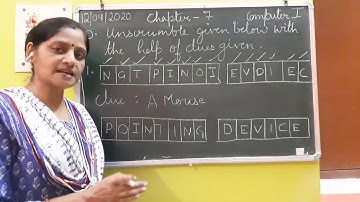 12/09/2020 Chapter-7 Computer I
Q. Unscramble given below with
the help of clues given.
1. NGTPINOI EVDIEC
Clue : A Mouse
POINTING DEVICE